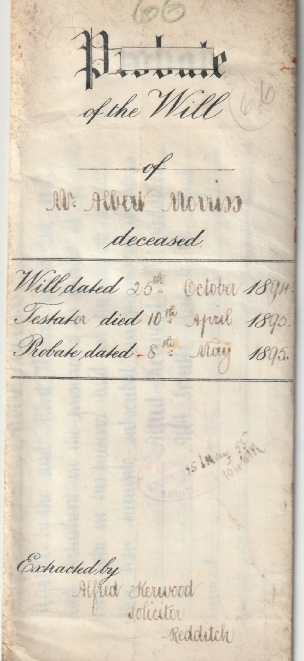 66
Probate
66
of the Will
of
Mr Albert Morriss
deceased
Will dated 25th October 1894.
Testator died 10th April 1895.
Probate dated - 8th May 1895.
15 May 95
Extracted by
Alfred Kerwood
Solicitor
Redditch